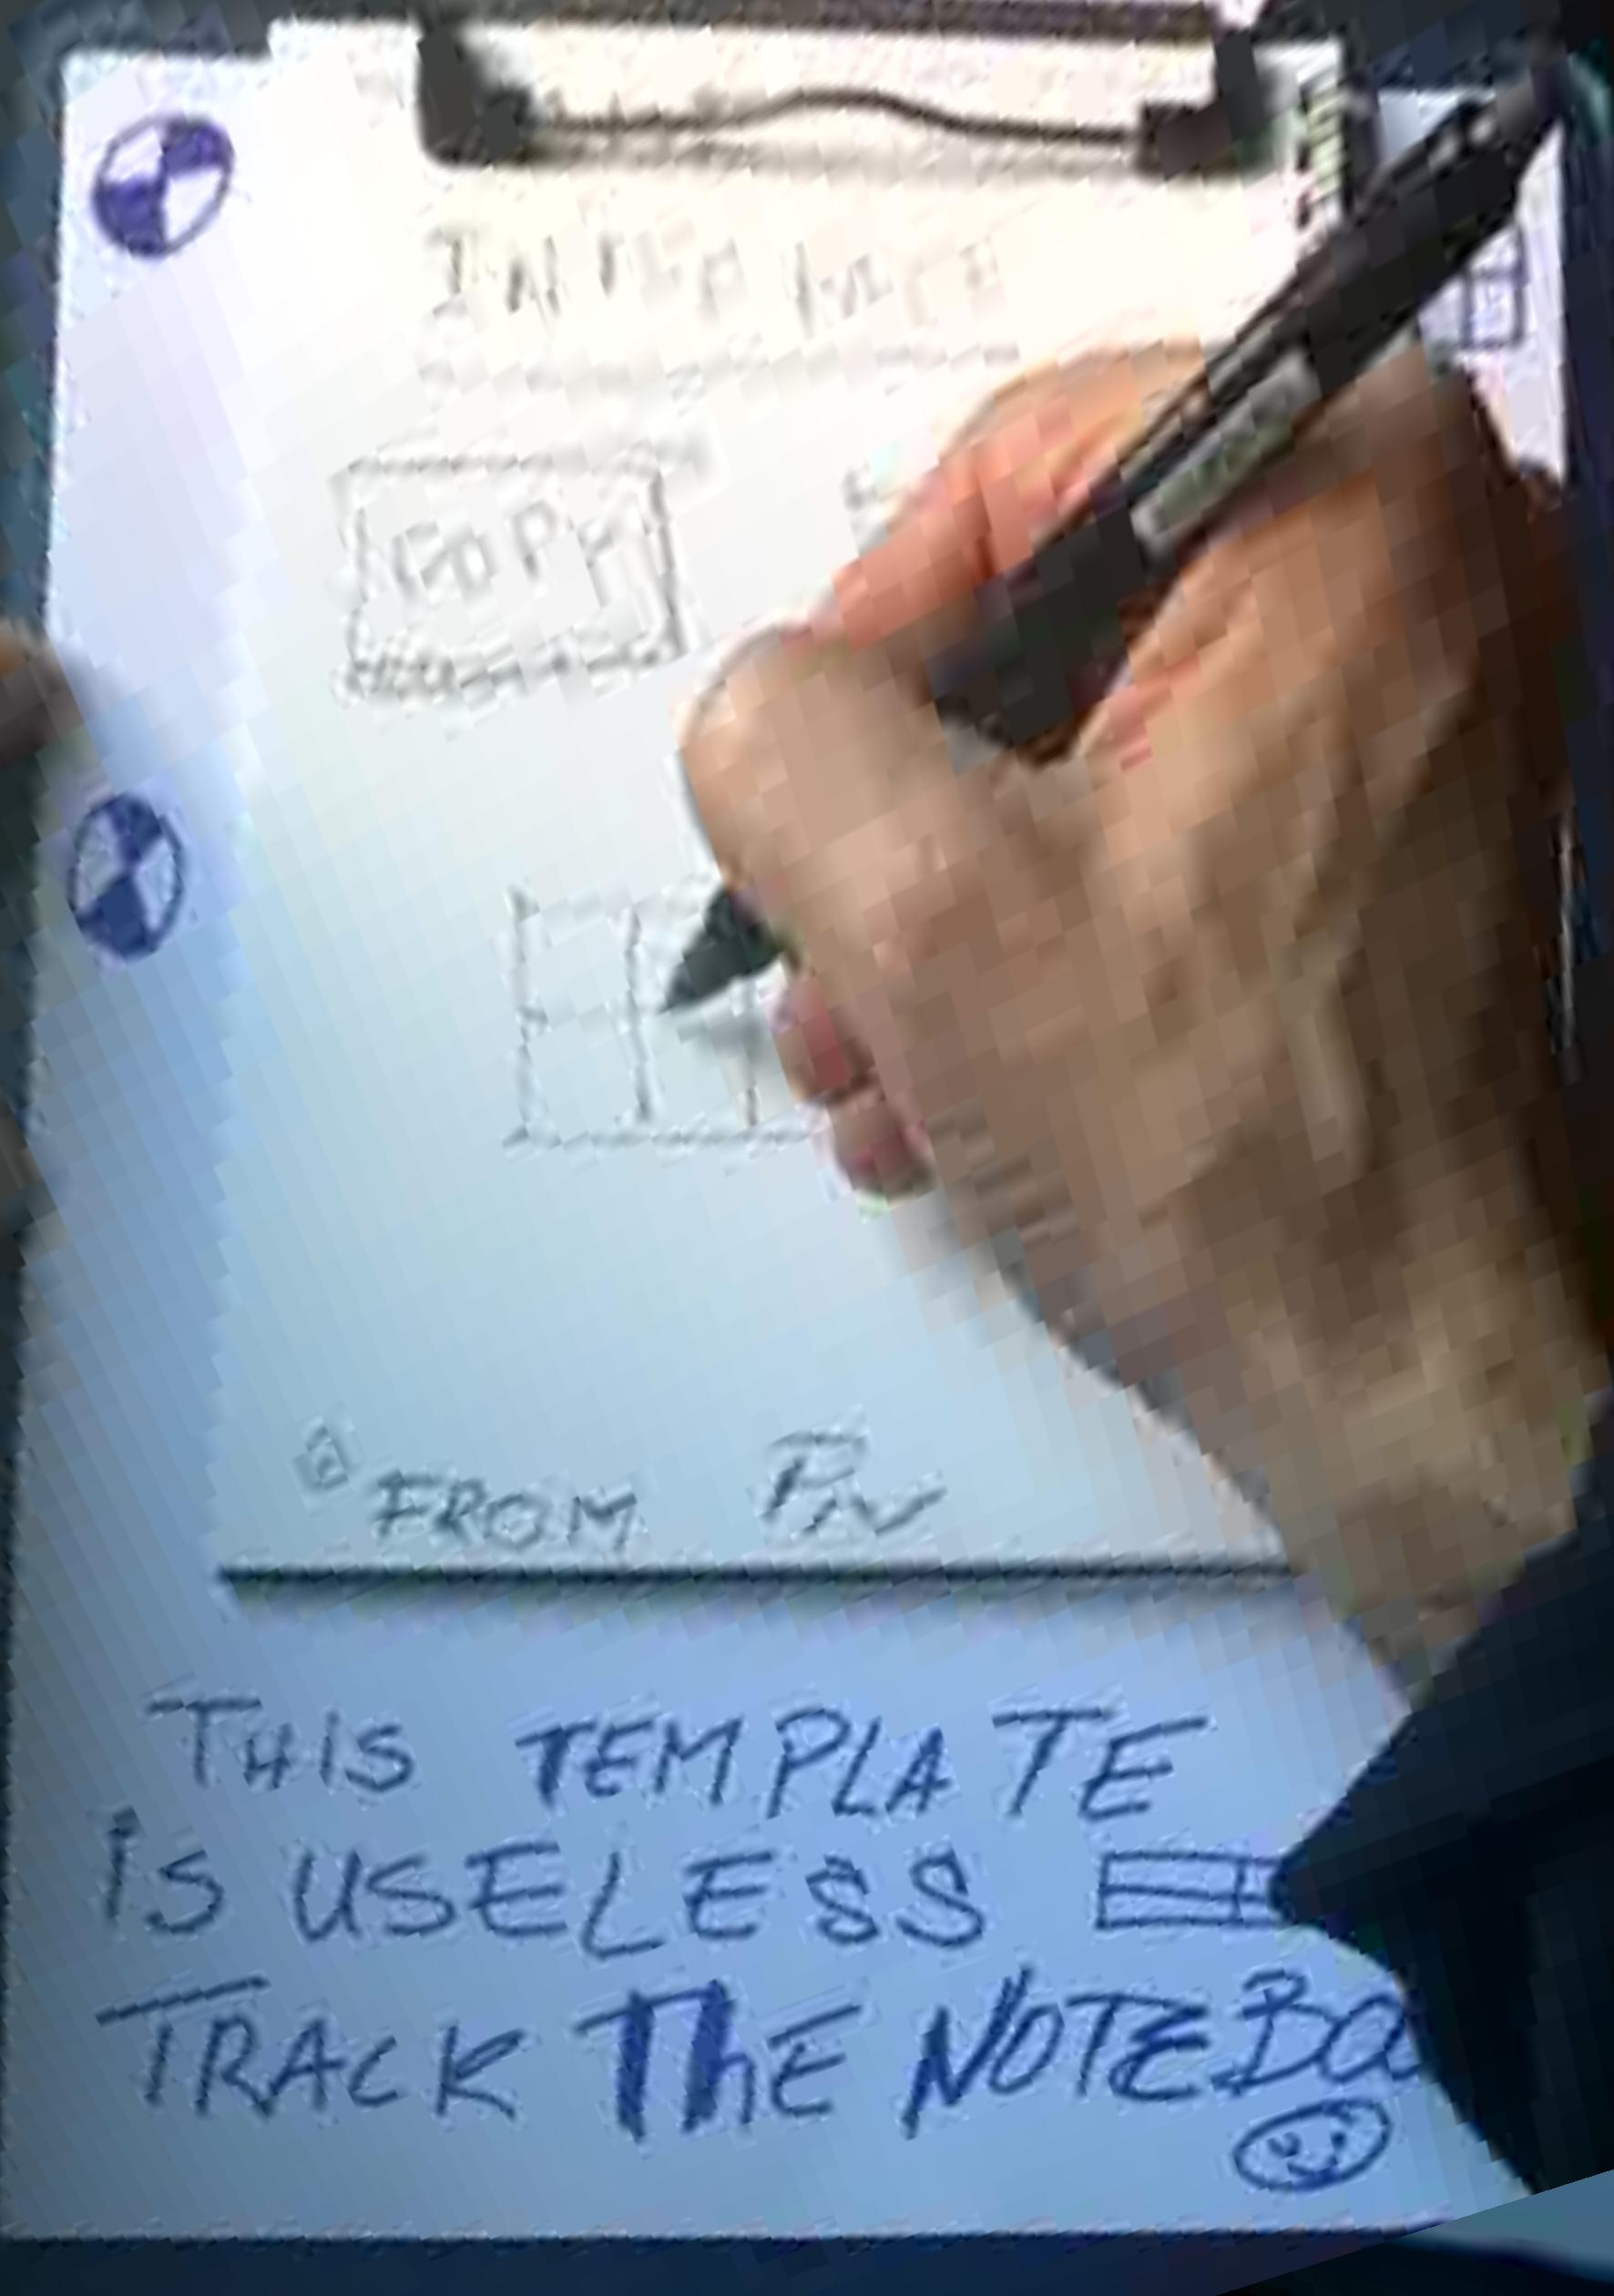 COPY
FROM
THIS TEMPLATE
IS USELESS
TRACK THE NOTEBO